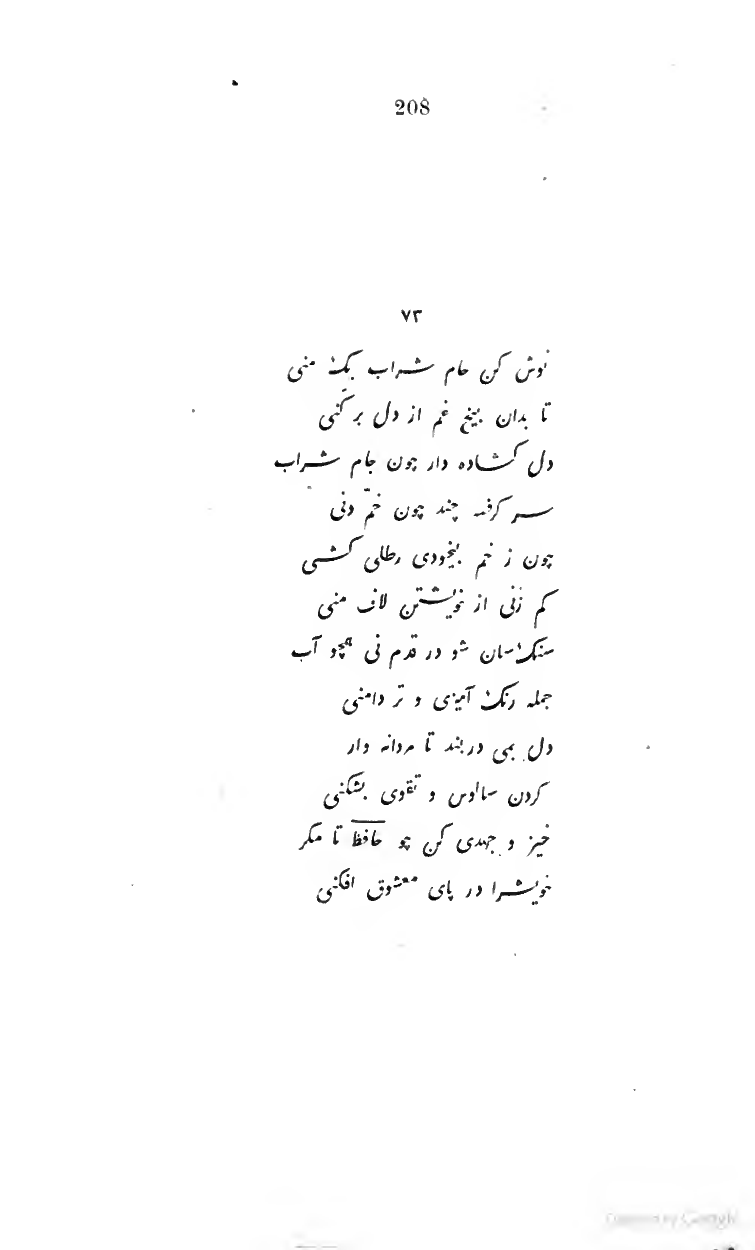 208
۷۳
نوش کن جام شراب یک منی
تا بدان بیخ غم از دل بر کنی
دل کشاده دار چون جام شراب
سر کرفته چند چون خمّ دنی
چون ز خم بیخودی رطلی کشی
کم زنی از خویشتن لاف منی
سنک‌سان شو در قدم نی همچو آب
جمله رنک آمیزی و تر دامنی
دل بمی دربند تا مردانه وار
کردن سالوس و تقوی بشکنی
خیز و جهدی کن چو حافظ تا مکر
خویشرا در پای معشوق افکنی